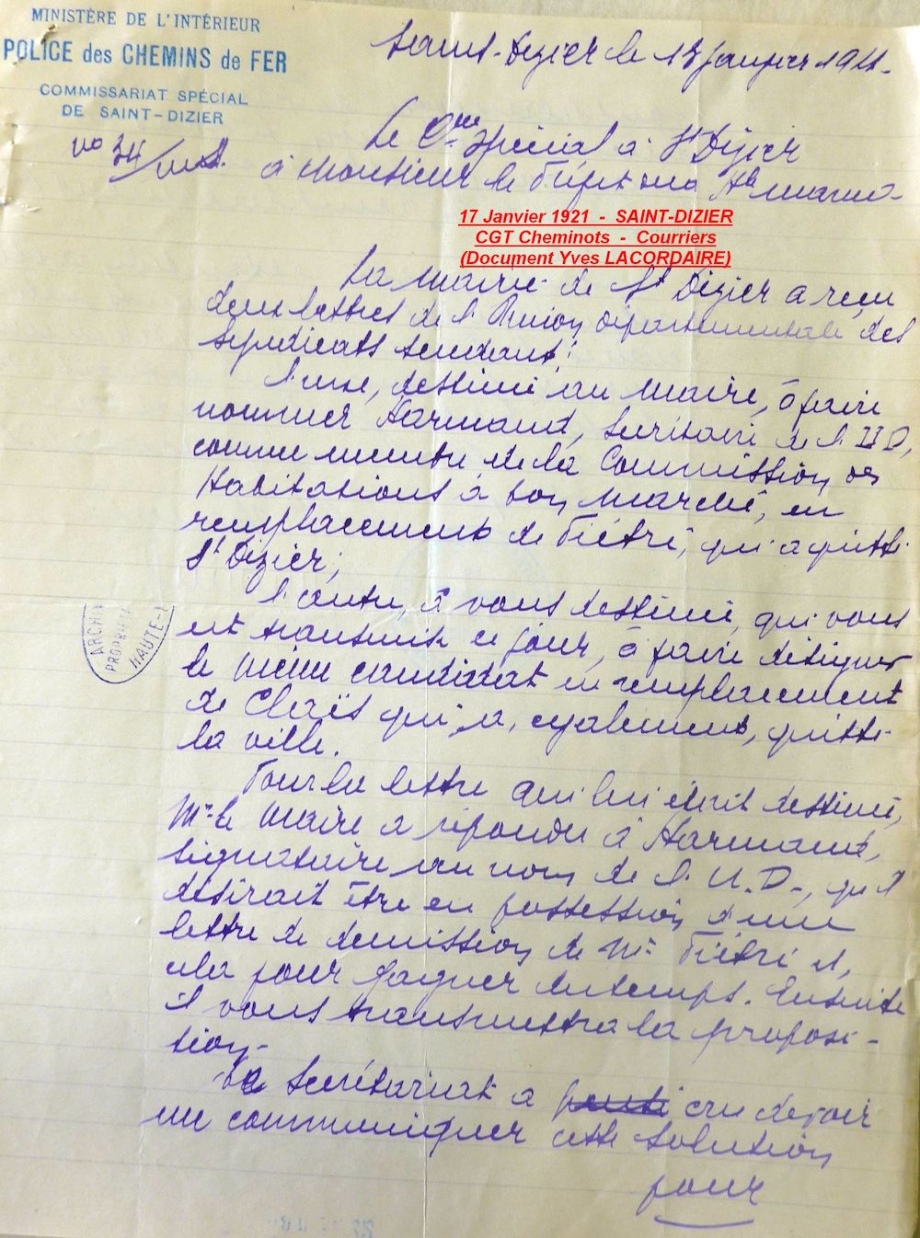 MINISTÈRE DE L'INTÉRIEUR
POLICE des CHEMINS de FER
COMMISSARIAT SPÉCIAL
DE SAINT-DIZIER
Saint-Dizier le 17 Janvier 1921.
no 34
Le Cre Spécial à St Dizier
à Monsieur le Préfet de la Hte Marne
17 Janvier 1921 - SAINT-DIZIER
CGT Cheminots - Courriers
(Document Yves LACORDAIRE)
La Mairie de St Dizier a reçu
deux lettres de l'Union départementale des
syndicats tendant:
l'une, destinée au Maire, à faire
nommer Harmand, secrétaire de l'UD,
comme membre de la Commission des
Habitations à bon marché, en
remplacement de Piétri, qui a quitté
St Dizier;
l'autre, à vous destinée, qui vous
est transmise ce jour, à faire désigner
le même candidat en remplacement
de Claïs qui, a, également, quitté
la ville.
Pour la lettre qui lui était destinée,
Mr le Maire a répondu à Harmand,
signataire au nom de l'U.D., qu'il
désirait être en possession d'une
lettre de démission de Mr Piétri et,
cela pour gagner du temps. Ensuite
il vous transmettra la proposi-
tion.
Le Secrétariat a cru devoir
me communiquer cette solution
pour
ARCHI
PROPRIÉ
HAUTE-